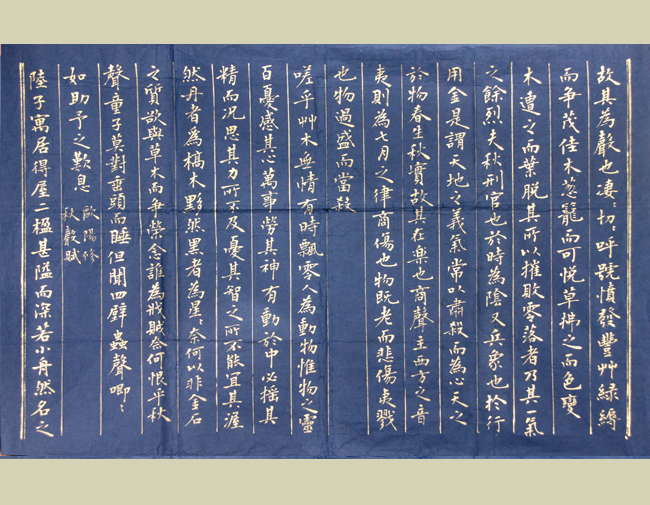 故其為聲也凄〻切〻呼號憤發豐艸緑縟
而争茂佳木葱籠而可悦草拂之而色變
木遭之而葉脱其所以摧敗零落者乃其一氣
之餘烈夫秋刑官也於時為陰又兵象也於行
用金是謂天地之義氣常以肅殺而為心天之
於物春生秋實故其在樂也商聲主西方之音
夷則為七月之律商傷也物既老而悲傷夷戮
也物過盛而當殺
嗟乎艸木無情有時飄零人為動物惟物之靈
百憂感其心萬事勞其神有動於中必搖其
精而况思其力所不及憂其智之所不能宜其渥
然丹者為槁木黟然黑者為星〻奈何以非金石
之質欲與草木而争榮念誰為戕賊奈何恨乎秋
聲童子莫對垂頭而睡但聞四壁蟲聲唧〻
如助予之歎息
歐陽修
秋聲賦
陸子寓居得屋二楹甚隘而深若小舟然名之